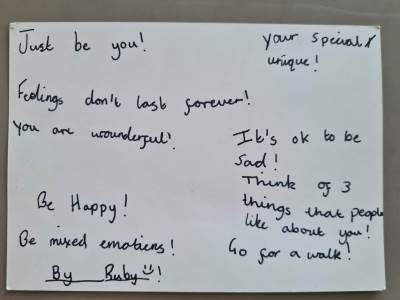 Just be you!
your special &
unique!
Feelings don't last forever!
You are wounderful!
It's ok to be
Sad!
Think of 3
things that people
like about you!
Go for a walk!
Be Happy!
Be mixed emotiens!
By Ruby!